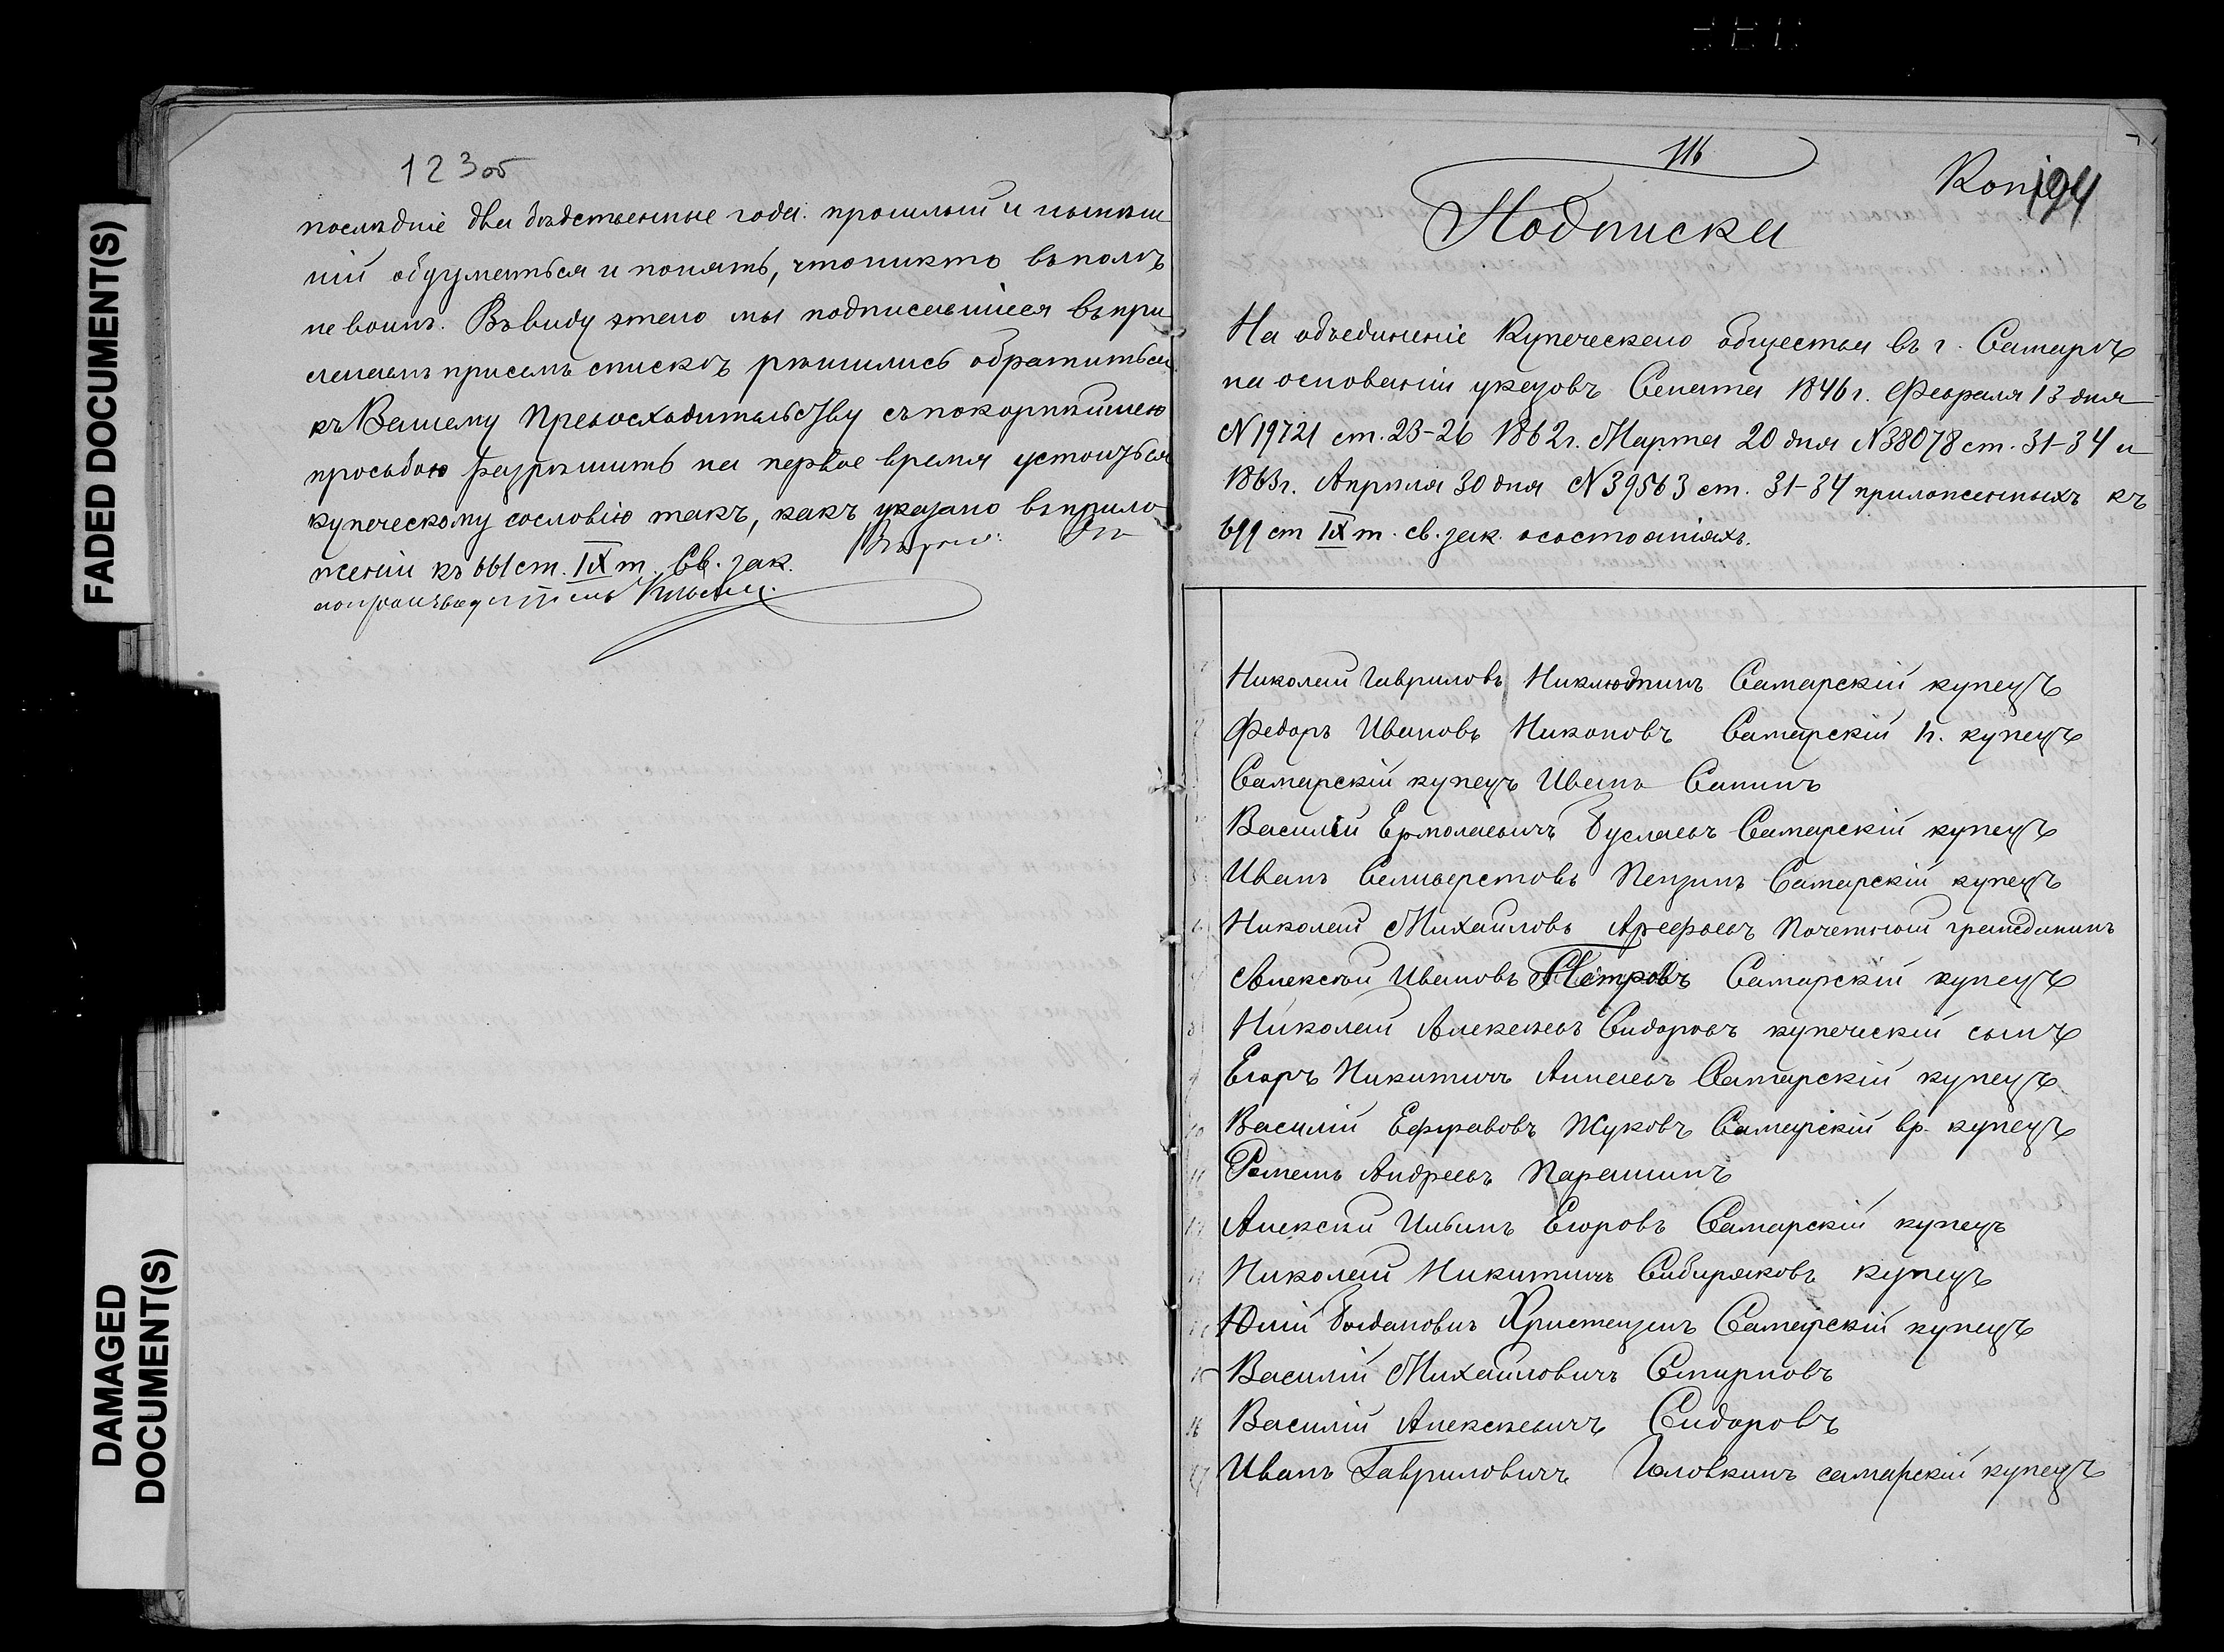 FADED DOCUMENT(S)
DAMAGED
DOCUMENT(S)
123 об
послѣдніе два бѣдственные года: прошлый и нынѣш
ній обдуматься и понять, что никто въ полѣ
не воинъ. Въ виду этаго мы подписавшіеся въ при
лагаемъ при семъ спискѣ рѣшились обратиться
къ Вашему Превосходительству съ покорнѣйшею
просьбою разрѣшить на первое время устоиться
купеческому сословію такъ, какъ указано въ прило
женіи къ 661 ст. IX т. Св. зак.
116
Копія
194
Подписка
На объединеніе Купеческаго общества въ г. Самарѣ
на основаніи указовъ Сената 1846 г. Февраля 13 дня
№ 19721 ст. 23-26 1862 г. Марта 20 дня № 38078 ст. 31-34 и
1863 г. Апрѣля 30 дня № 39563 ст. 31-34 приложенныхъ къ
699 ст IX т. св. зак. о состояніяхъ.
Николай Гавриловъ Неклюдинъ Самарскій купецъ
Федоръ Ивановъ Никоновъ Самарскій купецъ
Самарскій купецъ Иванъ Санинъ
Василій Ермолаевичъ Буслаевъ Самарскій купецъ
5 Иванъ Селиверстовъ Пензинъ Самарскій купецъ
6 Николай Михайловъ Арефьевъ Почетный гражданинъ
Алексѣй Ивановъ Петровъ Самарскій купецъ
8 Николай Алексѣевъ Сидоровъ купеческій сынъ
9 Егоръ Никитичъ Аннаевъ Самарскій купецъ
10 Василій Ефравовъ Жуковъ Самарскій вр. купецъ
11 Романъ Андреевъ Парашинъ
12 Алексѣй Ильинъ Егоровъ Самарскій купецъ
13 Николай Никитичъ Сибиряковъ купецъ
14 Юлій Богдановичъ Христензенъ Самарскій купецъ
15 Василій Михайловичъ Смирновъ
16 Василій Алексѣевичъ Сидоровъ
17 Иванъ Гавриловичъ Головкинъ самарскій купецъ